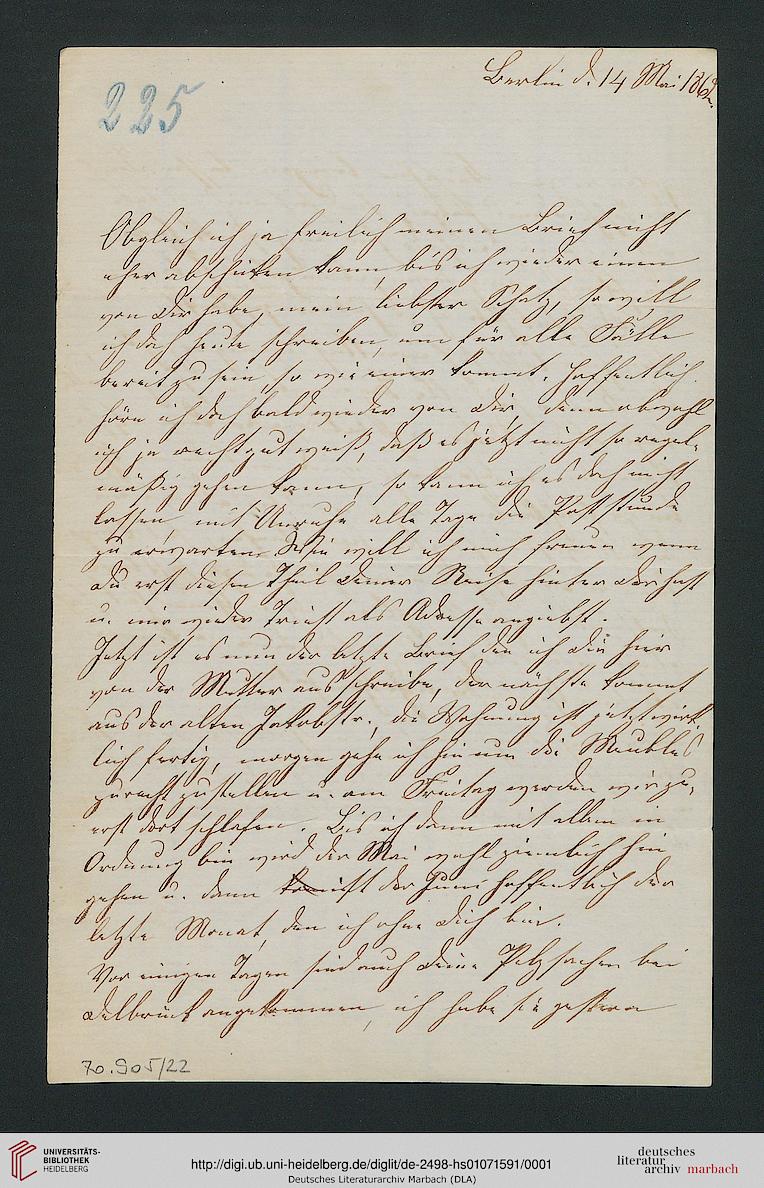 Berlin d. 14 Mai 1862.
225
Obgleich ich ja freilich meinen Brief nicht
eher abschicken kann, bis ich wieder einen
von Dir habe, mein liebster Schatz, so will
ich doch heute schreiben, um für alle Fälle
bereit zu sein, so wie einer kommt. Hoffentlich
höre ich doch bald wieder von Dir, denn obwohl
ich ja recht gut weiß, daß es jetzt nicht so regel-
mäßig gehen kann, so kann ich es doch nicht
lassen mit Unruhe alle Tage die Poststunde
zu erwarten. Wie will ich mich freuen wenn
Du erst diesen Theil Deiner Reise hinter Dir hast
u. mir wieder Triest als Adresse angiebst.
Jetzt ist es nun der letzte Brief den ich Dir hier
von der Mutter aus schreibe, der nächste kommt
aus der alten Jakobstr., die Wohnung ist jetzt wirk-
lich fertig, morgen gehe ich hin um die Meubles
zurecht zu stellen u. am Freitag werden wir zu-
erst dort schlafen. Bis ich dann mit allem in
Ordnung bin wird der Mai wohl ziemlich hin
gehen u. dann ist der Juni hoffentlich der
letzte Monat, den ich ohne Dich bin.
Vor einigen Tagen sind auch Deine Pelzsachen bei
Delbrück angekommen, ich habe sie gestern
70.905/22
UNIVERSITÄTS-
BIBLIOTHEK
HEIDELBERG
http://digi.ub.uni-heidelberg.de/diglit/de-2498-hs01071591/0001
Deutsches Literaturarchiv Marbach (DLA)
deutsches
literatur
archiv marbach